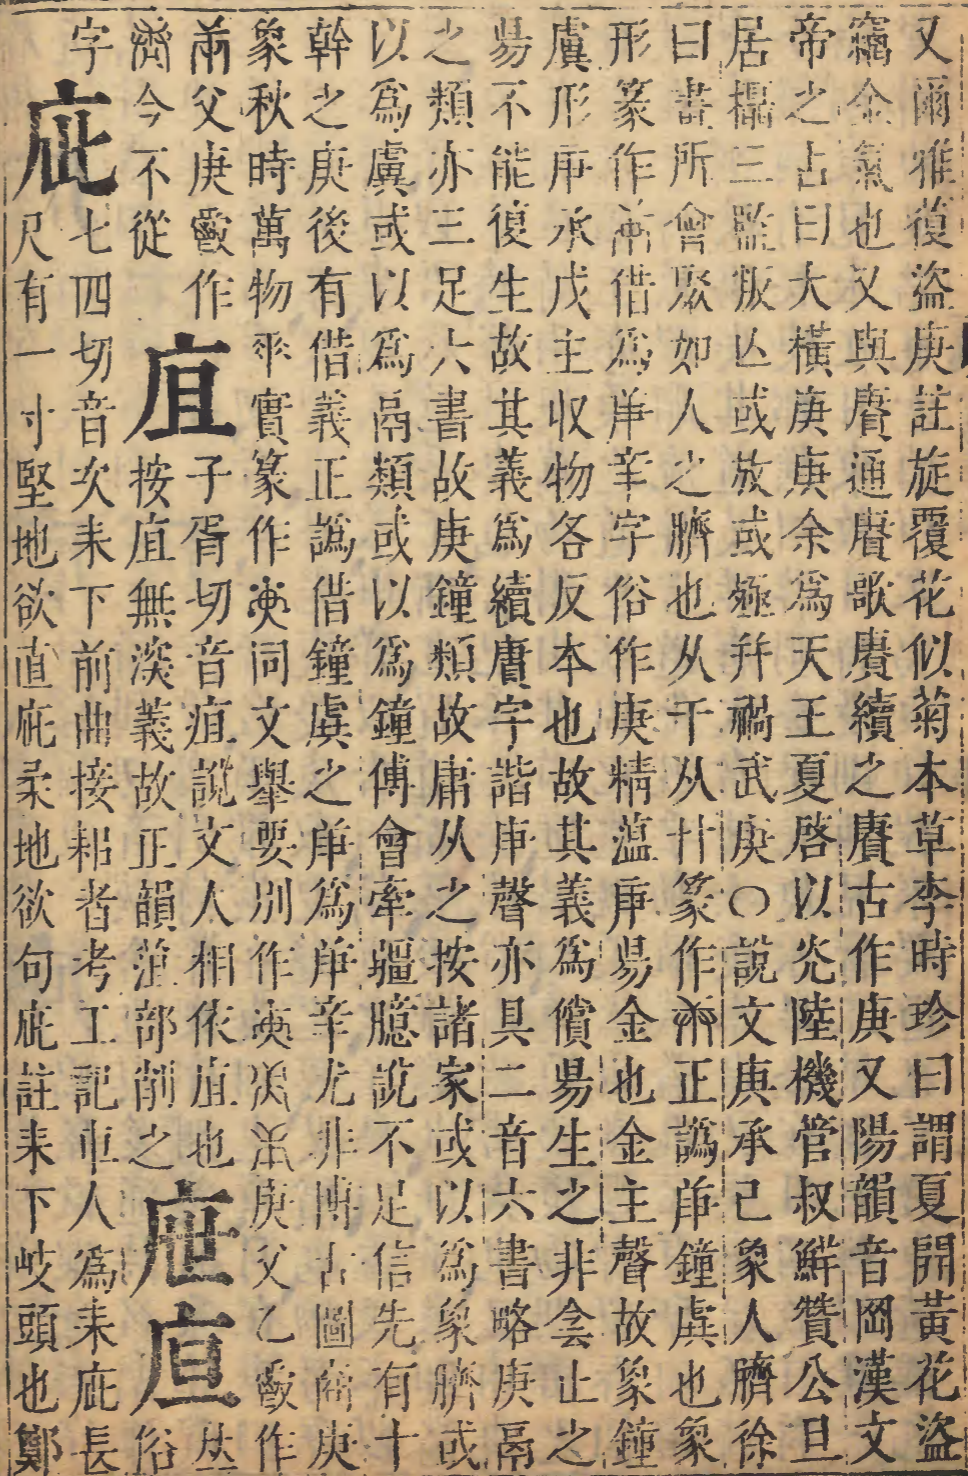 又爾雅蕧盜庚註旋覆花似菊本草李時珍曰謂夏開黃花盜
竊金氣也又與賡通賡歌賡續之賡古作庚又陽韻音岡漢文
帝之占曰大橫庚庚余為天王夏啓以光陸機管叔鮮贊公旦
居攝三監叛亾或放或殛幷禍武庚〇說文庚承己象人臍徐
曰書所會聚如人之臍也从干从廾篆作正譌庚鐘虡也象
形篆作借為庚辛字俗作庚精薀庚昜金也金主聲故象鐘
虡形庚承戊主收物各反本也故其義為償昜生之非侌止之
昜不能復生故其義為續賡字諧庚聲亦具二音六書略庚鬲
之類亦三足六書故庚鐘類故庸从之按諸家或以為象臍或
以為虡或以為鬲類或以為鐘傅會牽疆臆說不足信先有十
幹之庚後有借義正譌借鐘虡之庚為庚辛尤非博古圖商庚
象秋時萬物庚實篆作同文舉要別作庚父乙作
父庚作
𪗉今不從
㡹子胥切音疽說文人相依㡹也
按㡹無深義故正韻菹部削之
俗
字
庛七四切音次耒下前曲接耜者考工記車人為耒庛長
尺有一寸堅地欲直庛柔地欲句庛註耒下岐頭也鄭